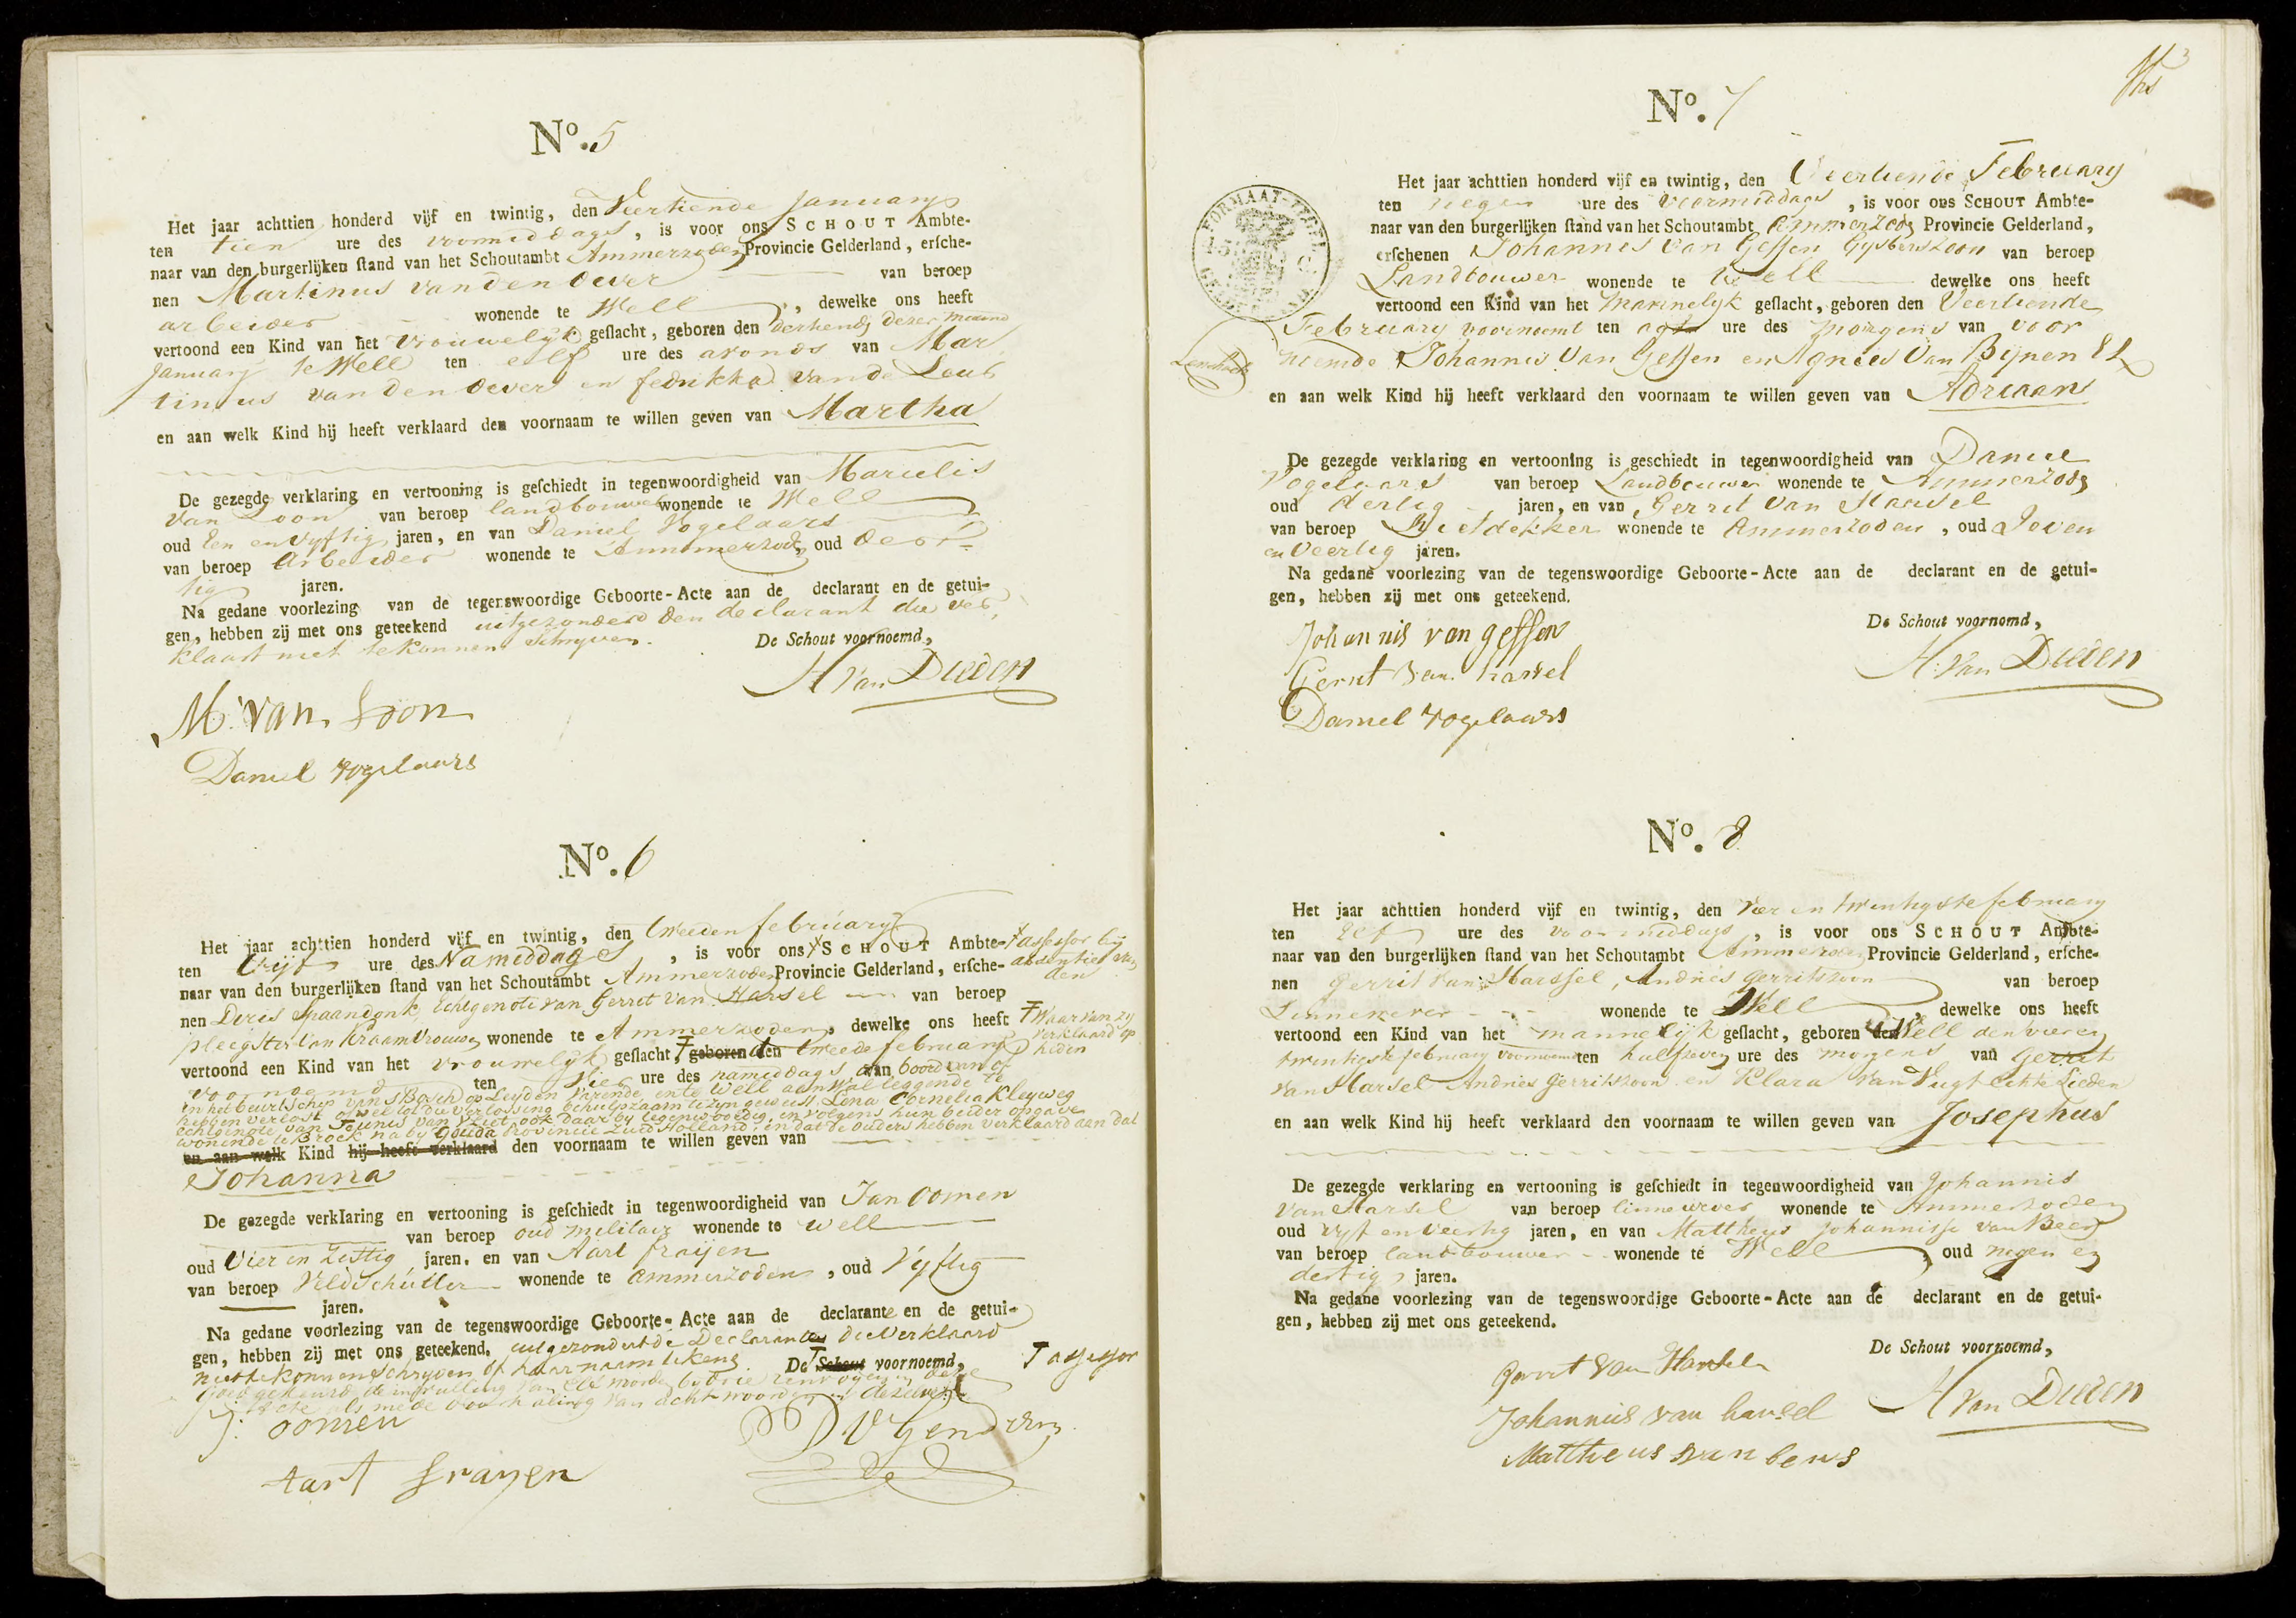 No. 5
Het jaar achttien honderd vijf en twintig, den Veertiende January
ten tien ure des voormiddags, is voor ons SCHOUT Ambte-
naar van den burgerlijken stand van het Schoutambt Ammerzoden Provincie Gelderland, ersche-
nen Martinus van den Oever van beroep
arbeider wonende te Well, dewelke ons heeft
vertoond een Kind van het vrouwelyk geslacht, geboren den dertiende dezer maand
January te Well ten elf ure des avonds van Mar
tinus van den Oever en fedrikka van de Leur
en aan welk Kind hij heeft verklaard den voornaam te willen geven van Martha
De gezegde verklaring en vertooning is geschiedt in tegenwoordigheid van Marcelis
van Loon van beroep landbouwer wonende te Well
oud Een en vyftig jaren, en van Daniel Vogelaars
van beroep Arbeider wonende te Ammerzode, oud der-
tig jaren.
Na gedane voorlezing van de tegenswoordige Geboorte-Acte aan de declarant en de getui-
gen, hebben zij met ons geteekend uitgezonderd den declarant die ver
klaart niet te konnen schryven.
De Schout voornoemd,
H Van Dieden
M. van Loon
Daniel vogelaars
No. 6
Het jaar achttien honderd vijf en twintig, den tweeden february
ten Vijf ure des Namiddags, is voor ons SCHOUT Ambte- assessor bij
absentie van
den
naar van den burgerlijken stand van het Schoutambt Ammerzoden Provincie Gelderland, ersche-
nen Diris Spaandonk, Echtgenote van Gerret van Harsel van beroep
pleegster van Kraamvrouwen wonende te Ammerzoden, dewelke ons heeft
waarvan zy
verklaard op
heden
vertoond een Kind van het vrouwelyk geslacht, geboren den tweede february
voornoemd ten vier ure des namiddags aan boord van of
in het beurtschip van sBosch op Leyden varende en te Well aen wal leggende te
hebben verlost of wel tot die verlossing behulpzaam te zyn geweest, Lena Cornelia Kleyweg
echtgenote van Teunis van Vliet ook daar by tegenwoordig, en volgens hun beider opgave
wonende te Broek naby Gouda provincie Zuid Holland, en dat de ouders hebben verklaard aan dat
en aan welk Kind hij heeft verklaard den voornaam te willen geven van
Johanna
De gezegde verklaring en vertooning is geschiedt in tegenwoordigheid van Jan Oomen
van beroep oud militair wonende te Well
oud Vier en Zestig jaren, en van Aart frayen
van beroep Veldschutter wonende te Ammerzoden, oud Vyftig
jaren.
Na gedane voorlezing van de tegenswoordige Geboorte-Acte aan de declarante en de getui-
gen, hebben zij met ons geteekend, uitgezondert de Declarante die verklaard
niet te konnen schryven of haar naam tekens.
De Schout voornoemd,
assessor
goed gekeurd de invulling van elf woorden
acte als mede doorhaling van acht woorden in dezelve
J: oomen
Aart frayen
No. 7
Het jaar achttien honderd vijf en twintig, den Veertiende February
ten negen ure des voormiddags, is voor ons SCHOUT Ambte-
naar van den burgerlijken stand van het Schoutambt Ammerzode Provincie Gelderland,
erschenen Johannis van Gessen Gysbertszoon van beroep
Landbouwer wonende te Well dewelke ons heeft
vertoond een Kind van het mannelyk geslacht, geboren den Veertiende
February voornoemt ten agt ure des morgens van voor
noemde Johannis van Gessen en Agnees van Bijnen El
en aan welk Kind hij heeft verklaard den voornaam te willen geven van Adriaan
De gezegde verklaring en vertooning is geschiedt in tegenwoordigheid van Daniel
Vogelaars van beroep Landbouwer wonende te Ammerzode
oud dertig jaren, en van Gerrit van Harsel
van beroep Rietdekker wonende te Ammerzoden, oud Zeven
en Veertig jaren.
Na gedane voorlezing van de tegenswoordige Geboorte-Acte aan de declarant en de getui-
gen, hebben zij met ons geteekend.
De Schout voornomd,
H. Van Dieden
Johannis van gessen
Gerrit van harsel
Daniel vogelaars
No. 8
Het jaar achttien honderd vijf en twintig, den vier en twintigste february
ten Elf ure des voormiddags, is voor ons SCHOUT Ambte-
naar van den burgerlijken stand van het Schoutambt Ammerzoden Provincie Gelderland, ersche-
nen Gerrit van Harssel, Andries Gerritszoon van beroep
Linnewever wonende te Well, dewelke ons heeft
vertoond een Kind van het mannelijk geslacht, geboren te Well den vier en
twintigste february voornoemt ten half zeven ure des morgens van Gerrit
van Harsel Andries Gerritszoon en Klara van Vugt Echte Lieden
en aan welk Kind hij heeft verklaard den voornaam te willen geven van Josephus
De gezegde verklaring en vertooning is geschiedt in tegenwoordigheid van Johannis
van Harsel van beroep linnewever wonende te Ammerzoden
oud vyf en veertig jaren, en van Mattheys Johannisse van Beers
van beroep landbouwer wonende te Well, oud negen en
dertig jaren.
Na gedane voorlezing van de tegenswoordige Geboorte-Acte aan de declarant en de getui-
gen, hebben zij met ons geteekend.
De Schout voornoemd,
H Van Dieden
Gerrit van Harsel
Johannis van harsel
Mattheus van beers